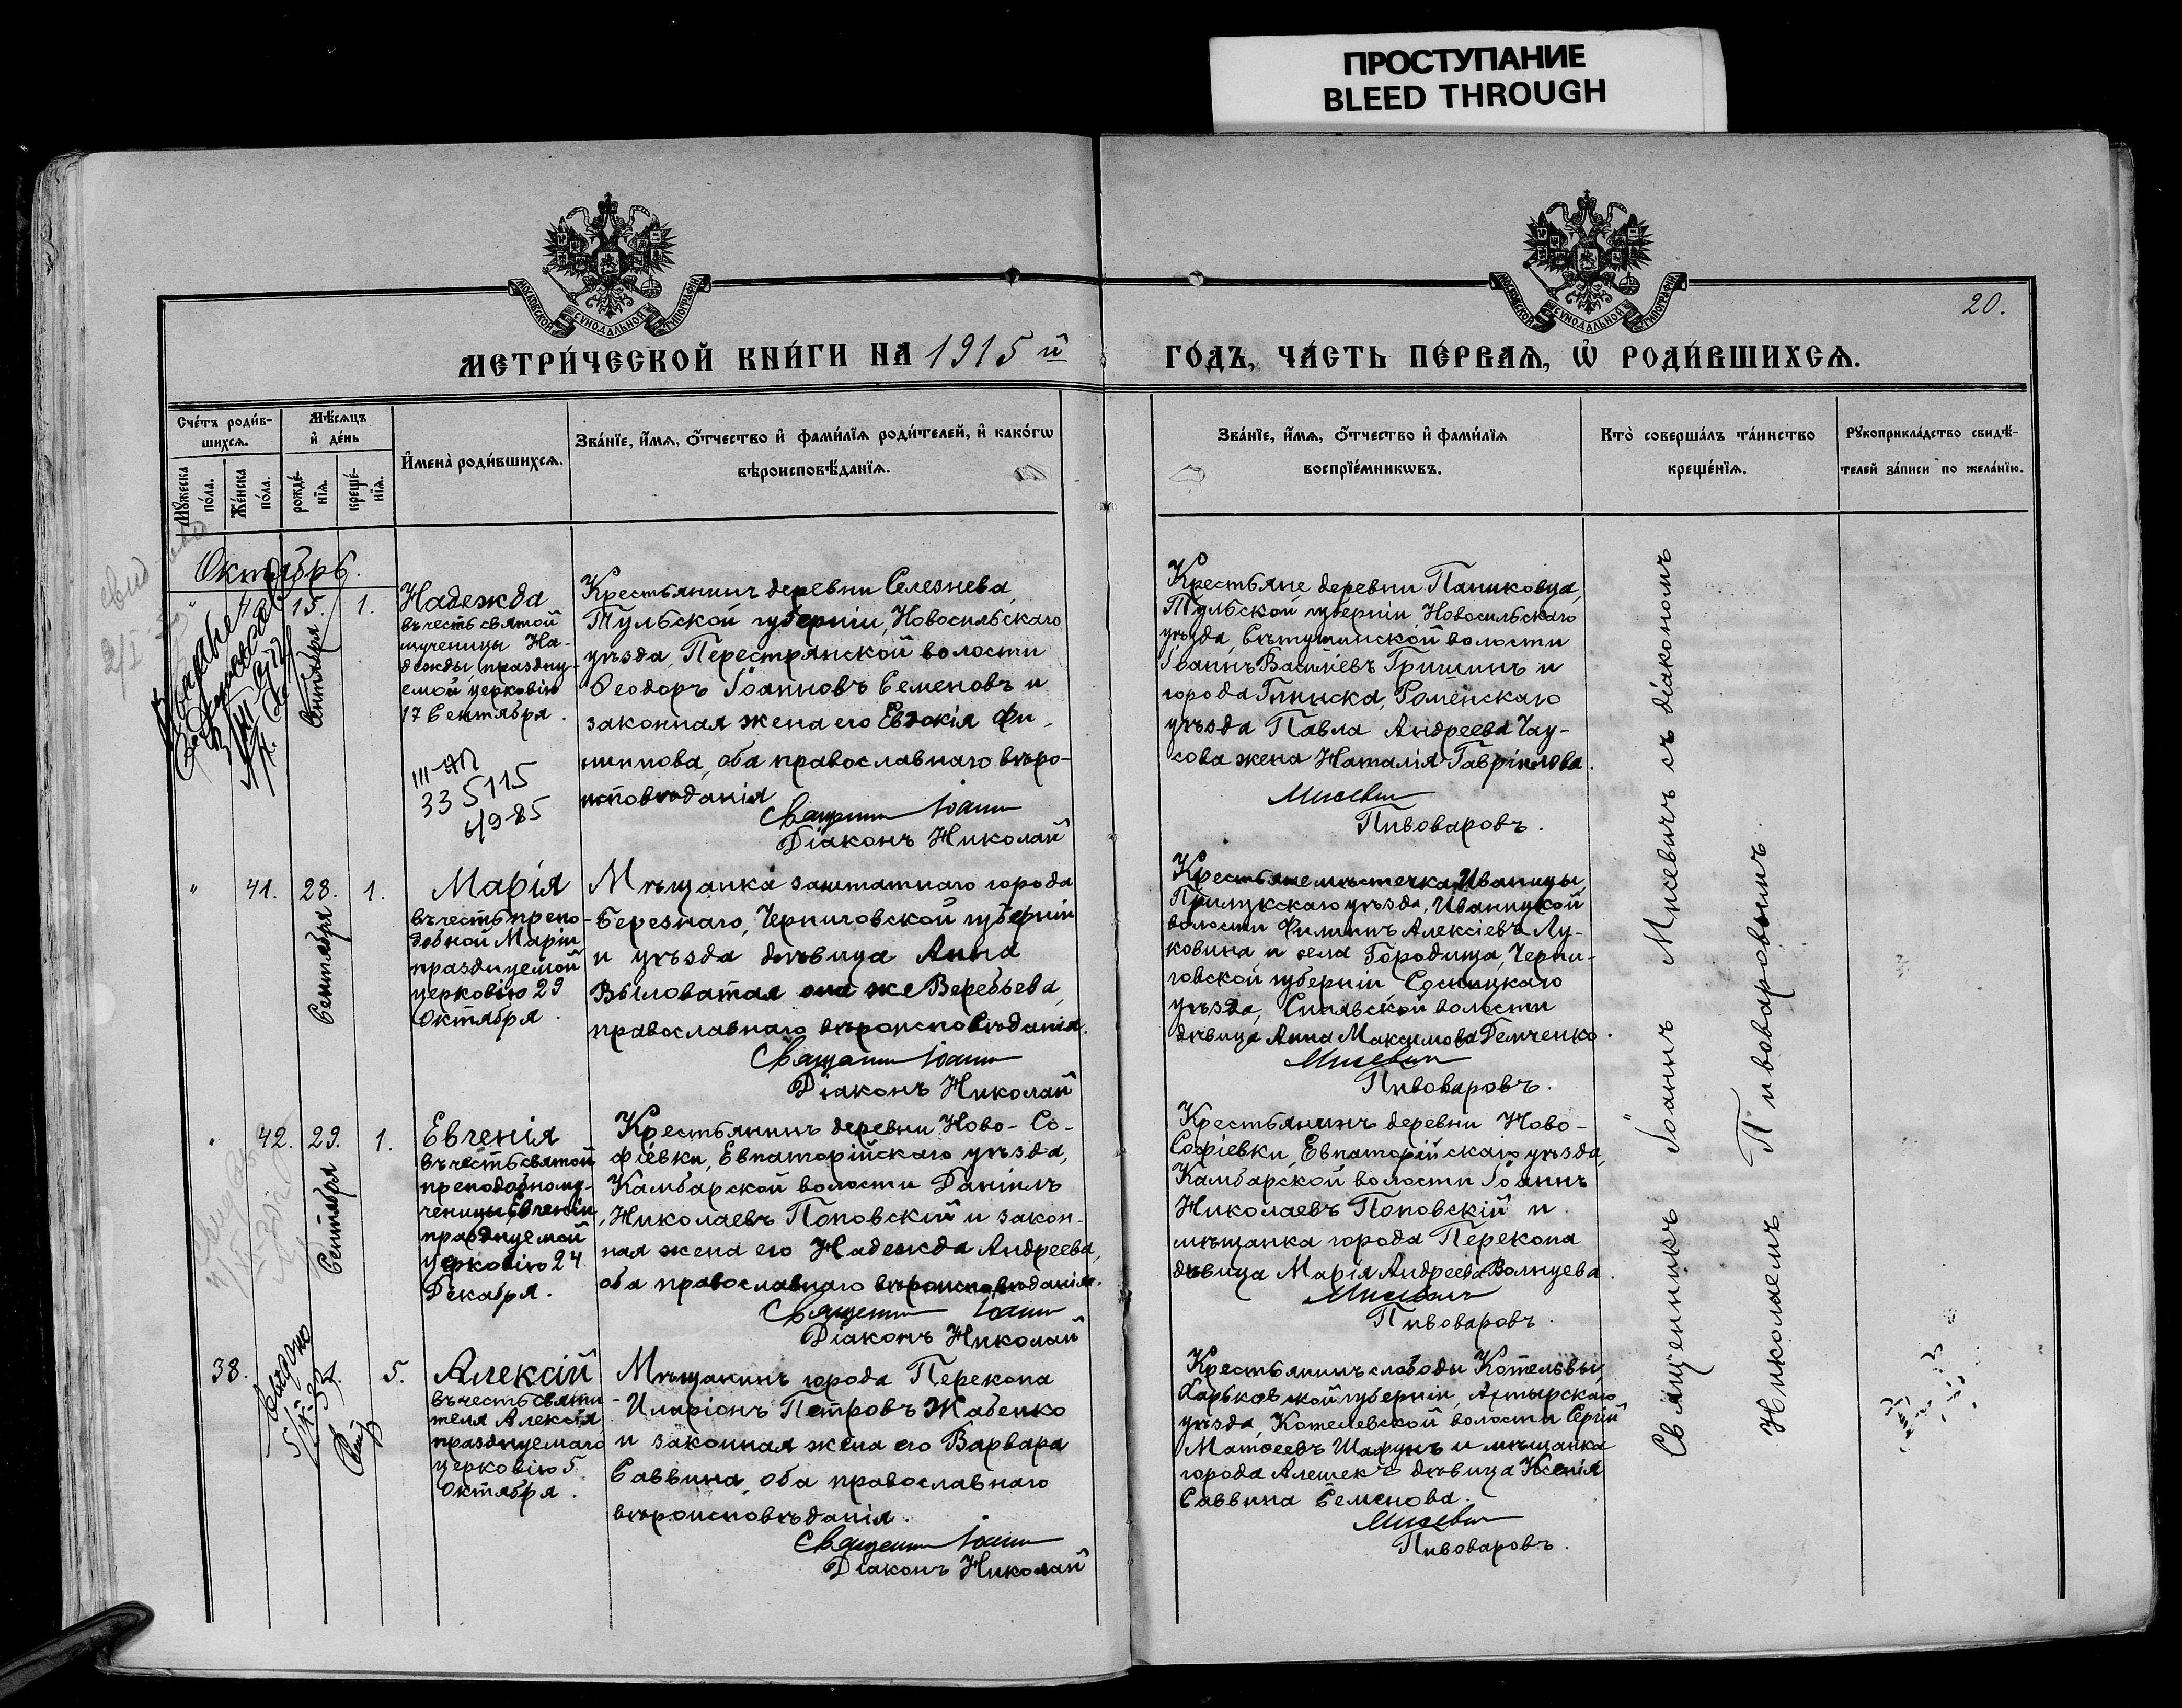 ПРОСТУПАНИЕ
BLEED THROUGH
МОСКОВСКОЙ СѴНОДАЛЬНОЙ ТИПОГРАФІИ
МОСКОВСКОЙ СѴНОДАЛЬНОЙ ТИПОГРАФІИ
20.
МЕТРИ́ЧЕСКОЙ КНИ́ГИ НА 1915 й
ГО́ДЪ, ЧА́СТЬ ПЕ́РВАѦ, Ѡ҆ РОДИ́ВШИХСѦ.
Сче́тъ роди́в-
шихсѧ.
Мѣ́сѧцъ
и҆ де́нь
Мꙋ́жеска
по́ла.
Же́нска
по́ла.
рожде́-
нїѧ.
креще́-
нїѧ.
И҆мена̀ роди́вшихсѧ.
Зва́нїе, и҆́мѧ, ѻ҆́тчество и҆ фами́лїѧ роди́телей, и҆ како́гѡ
вѣроисповѣ́данїѧ.
Зва́нїе, и҆́мѧ, ѻ҆́тчество и҆ фами́лїѧ
воспрїе́мникѡвъ.
Кто̀ соверша́лъ та́инство
креще́нїѧ.
Рꙋкоприкла́дство свидѣ́-
телей за́писи по жела́нїю.
Октябрь.
15.
Сентября
1.
Надежда
въ честь святой
мученицы На-
дежды, праздну-
емой церковію
17 Сентября.
335115
6/9-85
Крестьянинъ деревни Селезнева,
Тульской губерніи, Новосильскаго
уѣзда, Перестряжской волости
Ѳеодоръ Іоанновъ Семеновъ и
законная жена его Евдокія Фи-
липпова, оба православнаго вѣро-
исповѣданія
Священникъ Іоаннъ
Діаконъ Николай
Крестьяне деревни Паниковца,
Тульской губерніи Новосильскаго
уѣзда, волости
Іоаннъ Васильевъ Гришинъ и
города Глинска, Роменскаго
уѣзда Павла Андреева Чау-
сова жена Наталія Гавріилова.
Мисевичъ
Пивоваровъ.
"
41.
28.
Сентября
1.
Марія
въ честь препо-
добной Маріи
празднуемой
церковію 29
Октября.
Мѣщанка заштатнаго города
Березнаго, Черниговской губерніи
и уѣзда дѣвица Анна
Выловатая она же Веребьева,
православнаго вѣроисповѣданія.
Священникъ Іоаннъ
Діаконъ Николай
Крестьяне мѣстечка Иваницы,
Прилукскаго уѣзда, Иваницкой
волости Филиппъ Алексіевъ Лу-
ковина и села Городища, Черни-
говской губерніи Сосницкаго
уѣзда, волости
дѣвица Анна Максимова Демченко.
Мисевичъ
Пивоваровъ.
"
42.
29.
Сентября
1.
Евгенія
въ честь святой
преподобному-
ченицы Евгеніи,
празднуемой
церковію 24
Декабря.
Крестьянинъ деревни Ново-Со-
фіевки, Евпаторійскаго уѣзда,
Камбарской волости Даніилъ
Николаевъ Поповскій и закон-
ная жена его Надежда Андреева,
оба православнаго вѣроисповѣданія.
Священникъ Іоаннъ
Діаконъ Николай
Крестьянинъ деревни Ново-
Софіевки, Евпаторійскаго уѣзда,
Камбарской волости Іоаннъ
Николаевъ Поповскій и
мѣщанка города Перекопа
дѣвица Марія Андреева Волнцева.
Мисевичъ
Пивоваровъ.
38.
5.
Алексій
въ честь святи-
теля Алексія,
празднуемаго
церковію 5
Октября.
Мѣщанинъ города Перекопа
Иларіонъ Петровъ Жабенко
и законная жена его Варвара
Саввина, оба православнаго
вѣроисповѣданія.
Священникъ Іоаннъ
Діаконъ Николай
Крестьянинъ слободы Котельвы,
Харьковской губерніи, Ахтырскаго
уѣзда, Котелевской волости Сергій
Матѳеевъ Шафунъ и мѣщанка
города Алешекъ дѣвица Ксенія
Саввина Семенова.
Мисевичъ
Пивоваровъ.
Священникъ Іоаннъ Мисевичъ съ діакономъ
Николаемъ Пивоваровымъ.